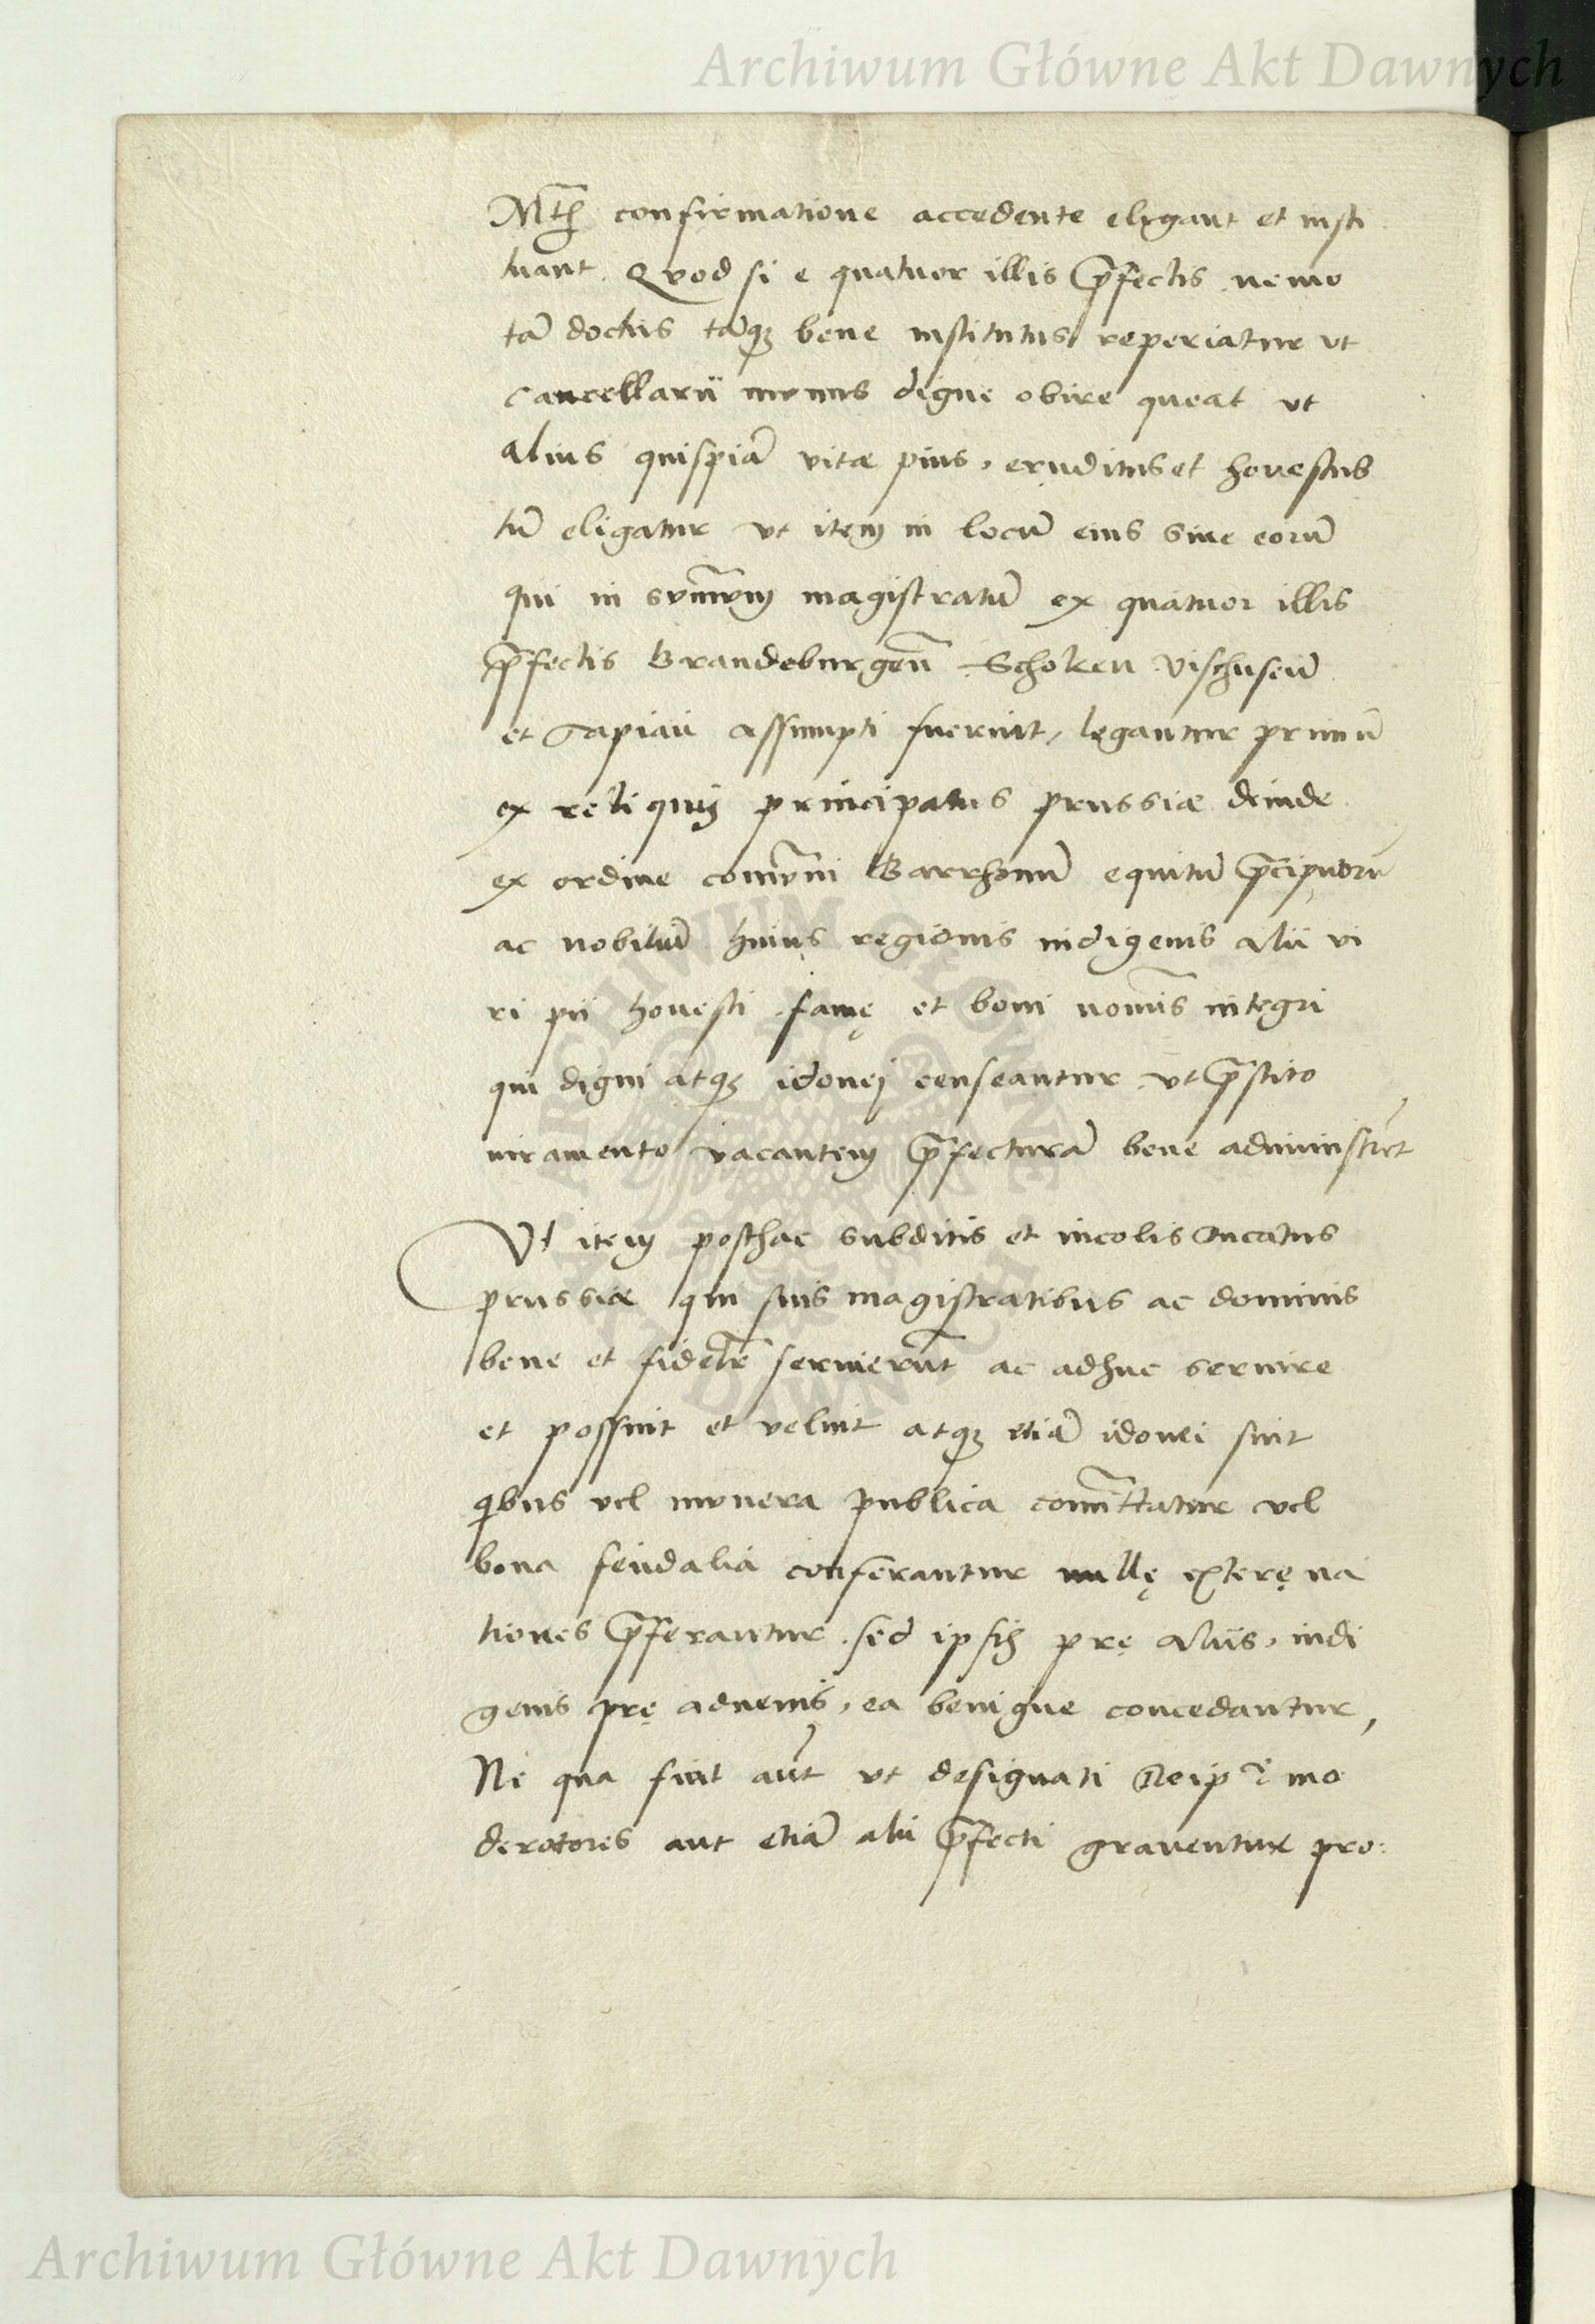 Archiwum Główne Akt Dawnych
confirmatione accedente eligant et insti
tuant. Quod si e quatuor illis p̄fectis nemo
tā doctus tāq₃ bene institutus reperiatur vt
Cancellarii munus digne obire queat vt
alius quispiā vitæ pius, eruditus et honestus
tū eligatur vt item in locū eius siue eorū
qui in sum̄um magistratū ex quatuor illis
p̄fectis Brandeburgen̄ Schoken Vischuseū
et Tapiau assumpti fuerint, legantur primū
ex reliquis principatus prussiæ deinde
ex ordine com̄uni Barrhonū equitū p̄cipuorū
ac nobiliū huius regionis indigenis alii vi
ri pii honesti famę et boni nom̄is integri
qui digni atq₃ idonej censeantur vt p̄stito
iuramento vacantem p̄fecturā bene administrēt
Vt item posthac subditis et incolis Ducatus
prussiæ qui suis magistratibus ac dominis
bene et fidelr̄ seruierūt ac adhuc seruire
et possint et velint atq₃ etiā idonei sint
qbus vel munera publica com̄ittātur vel
bona feudalia conferantur nullę exterę na
tiones p̄ferantur. sed ipsis prę aliis, indi
genis prę aduenis, ea benigne concedantur,
Ne qua fiat aūt vt designati Reip. mo
deratores aut etiā alii p̄fecti grauentur pro:
Archiwum Główne Akt Dawnych